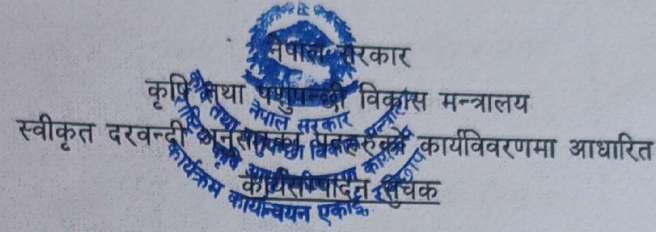 नेपाल सरकार
कृषि तथा पशुपन्छी विकास मन्त्रालय
स्वीकृत दरवन्दी अनुसारका पदहरुको कार्यविवरणमा आधारित
कार्यसम्पादन सुचक
नेपाल सरकार
कार्यक्रम कार्यान्वयन एकाई